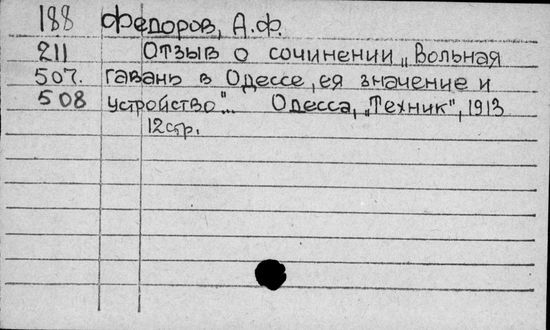 188 Федоров, А.Ф.
211 Отзыв о сочинении „Вольная
507. гавань в Одессе, ея значение и
508 устройство"... Одесса, „Техник", 1913
12стр.